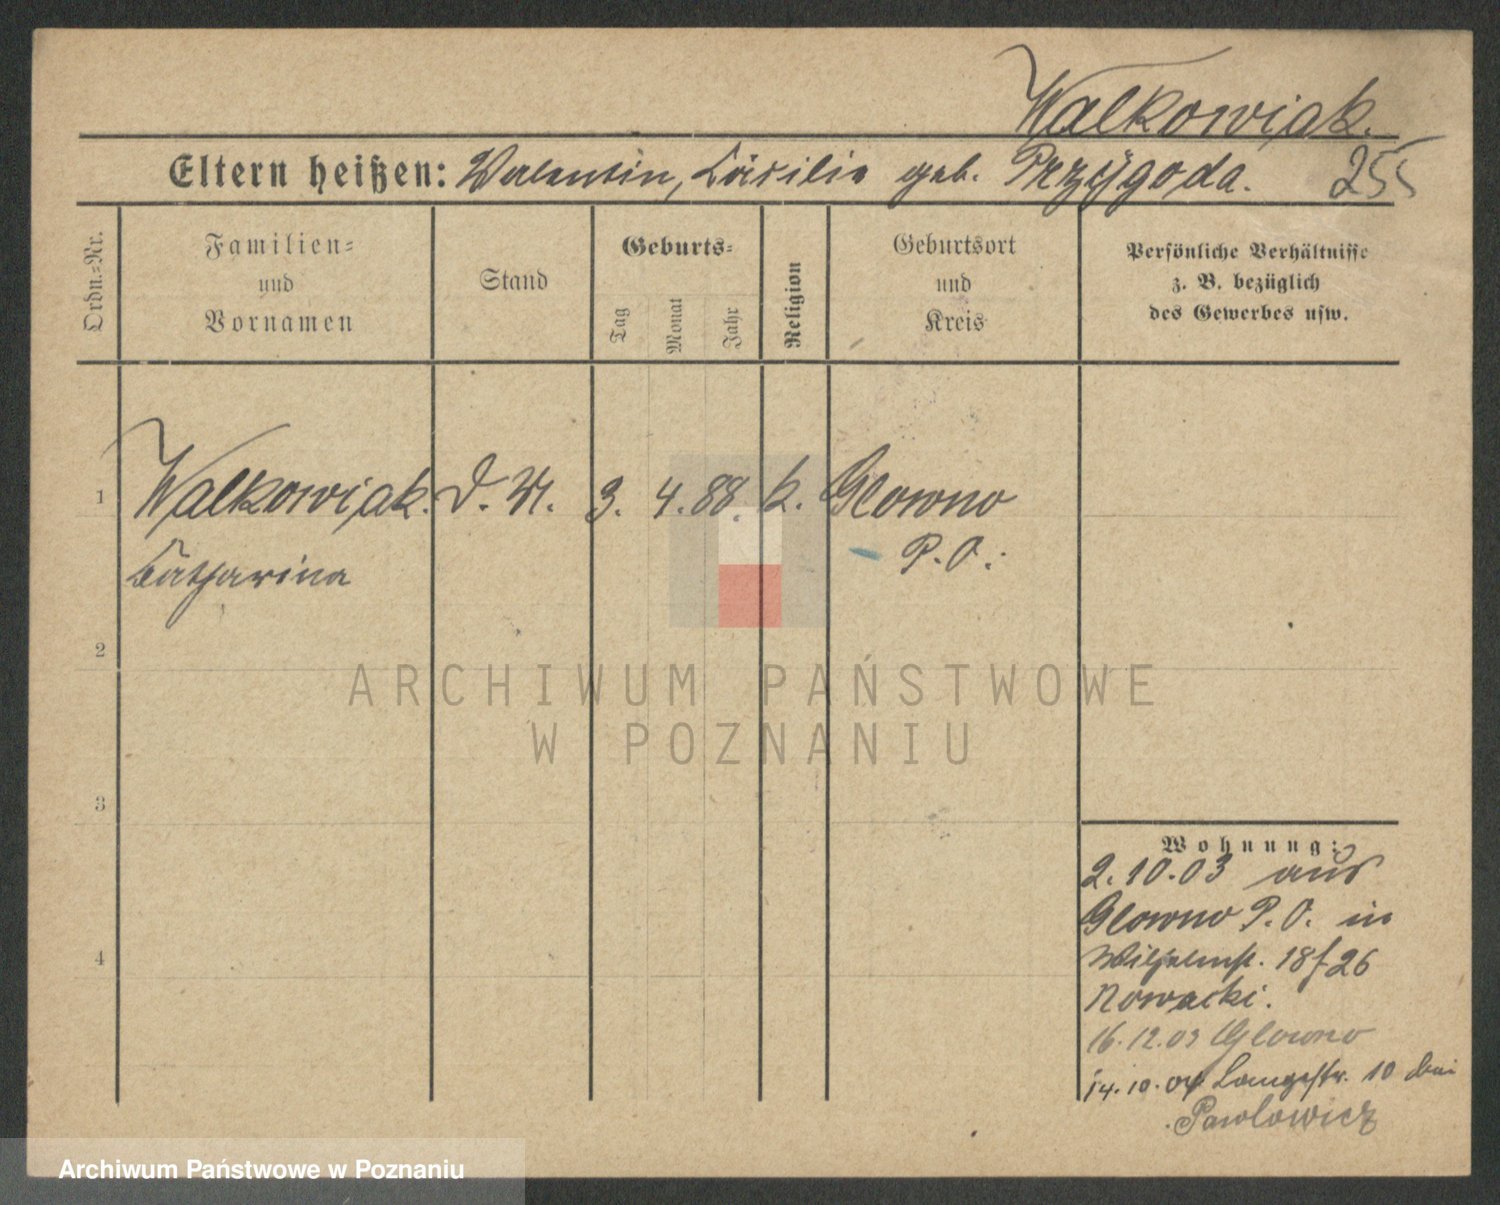 Walkowiak.
Eltern heißen: Valentin, Cäsilie geb. Przygoda. 255
Ordn.=Nr.
Familien=
und
Vornamen
Stand
Geburts=
Tag
Monat
Jahr
Religion
Geburtsort
und
Kreis
Persönliche Verhältnisse
z. B. bezüglich
des Gewerbes usw.
1 Walkowiak. D. M. 3. 4. 88. k. Glowno
Catharina P. O.
2
3
4
Wohnung:
2. 10. 03 aus
Glowno P. O. in
Wilhelmst. 18 f 26
Nowacki.
16. 12. 03 Glowno
14. 10. 04 Langestr. 10 bei
Pawlowicz
ARCHIWUM PAŃSTWOWE
W POZNANIU
Archiwum Państwowe w Poznaniu